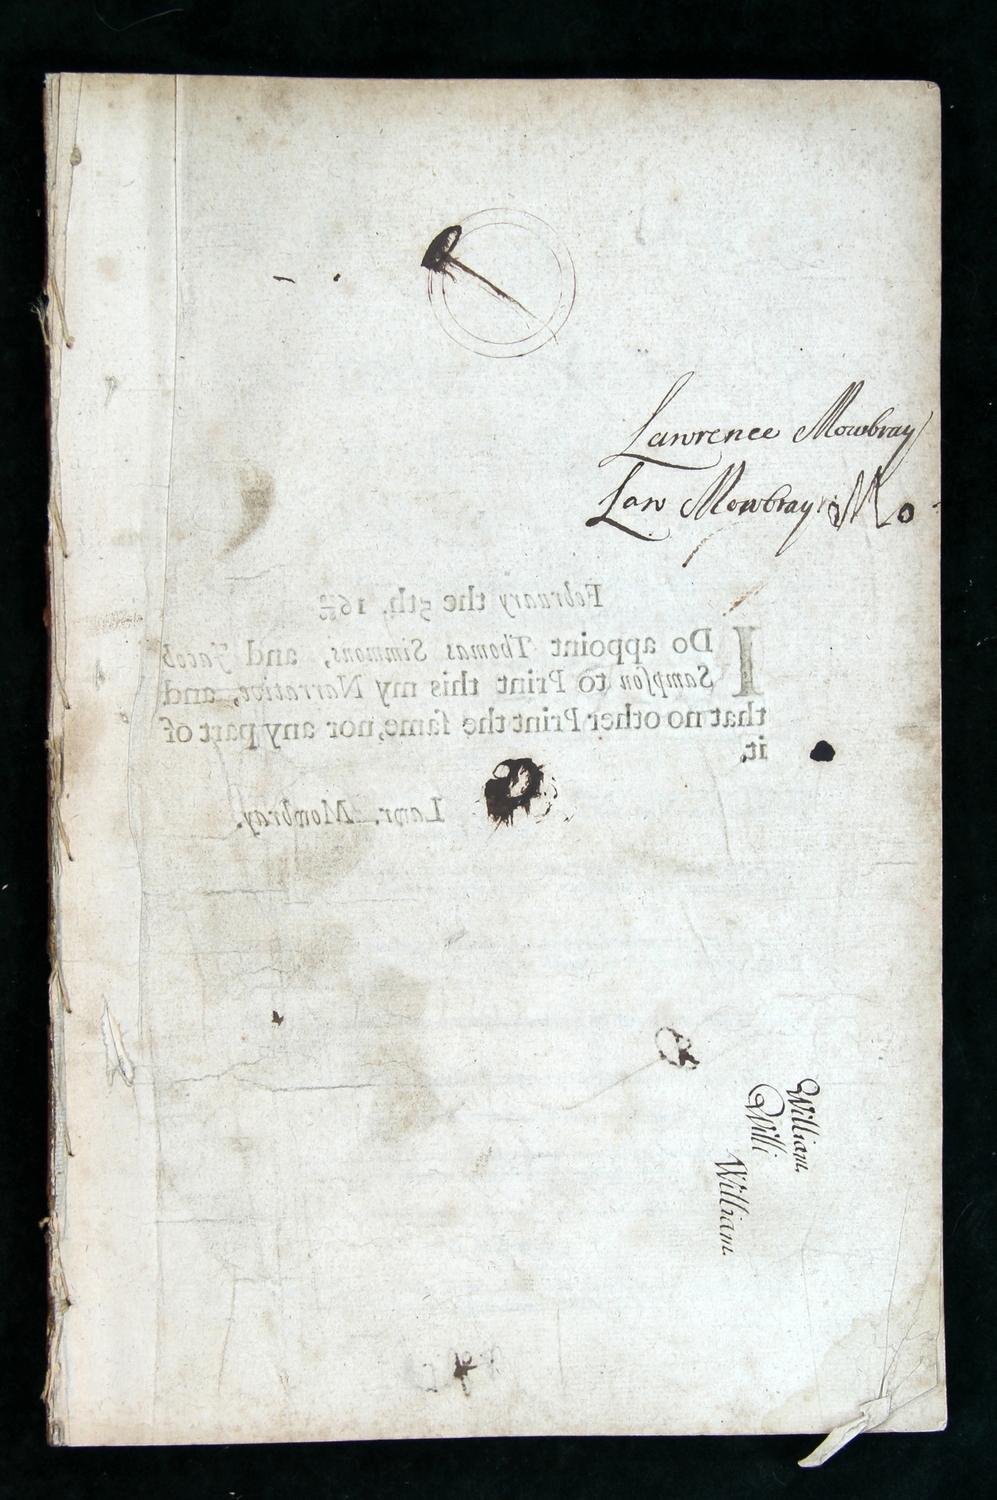 Lawrence Mowbray
Law Mowbray Mo
February the 5th, 16
I Do appoint Thomas Simmons, and Jacob
Sampſon to Print this my Narrative, and
that no other Print the ſame, nor any part of
it.
Lawr. Mowbray.
William.
Willi
William.